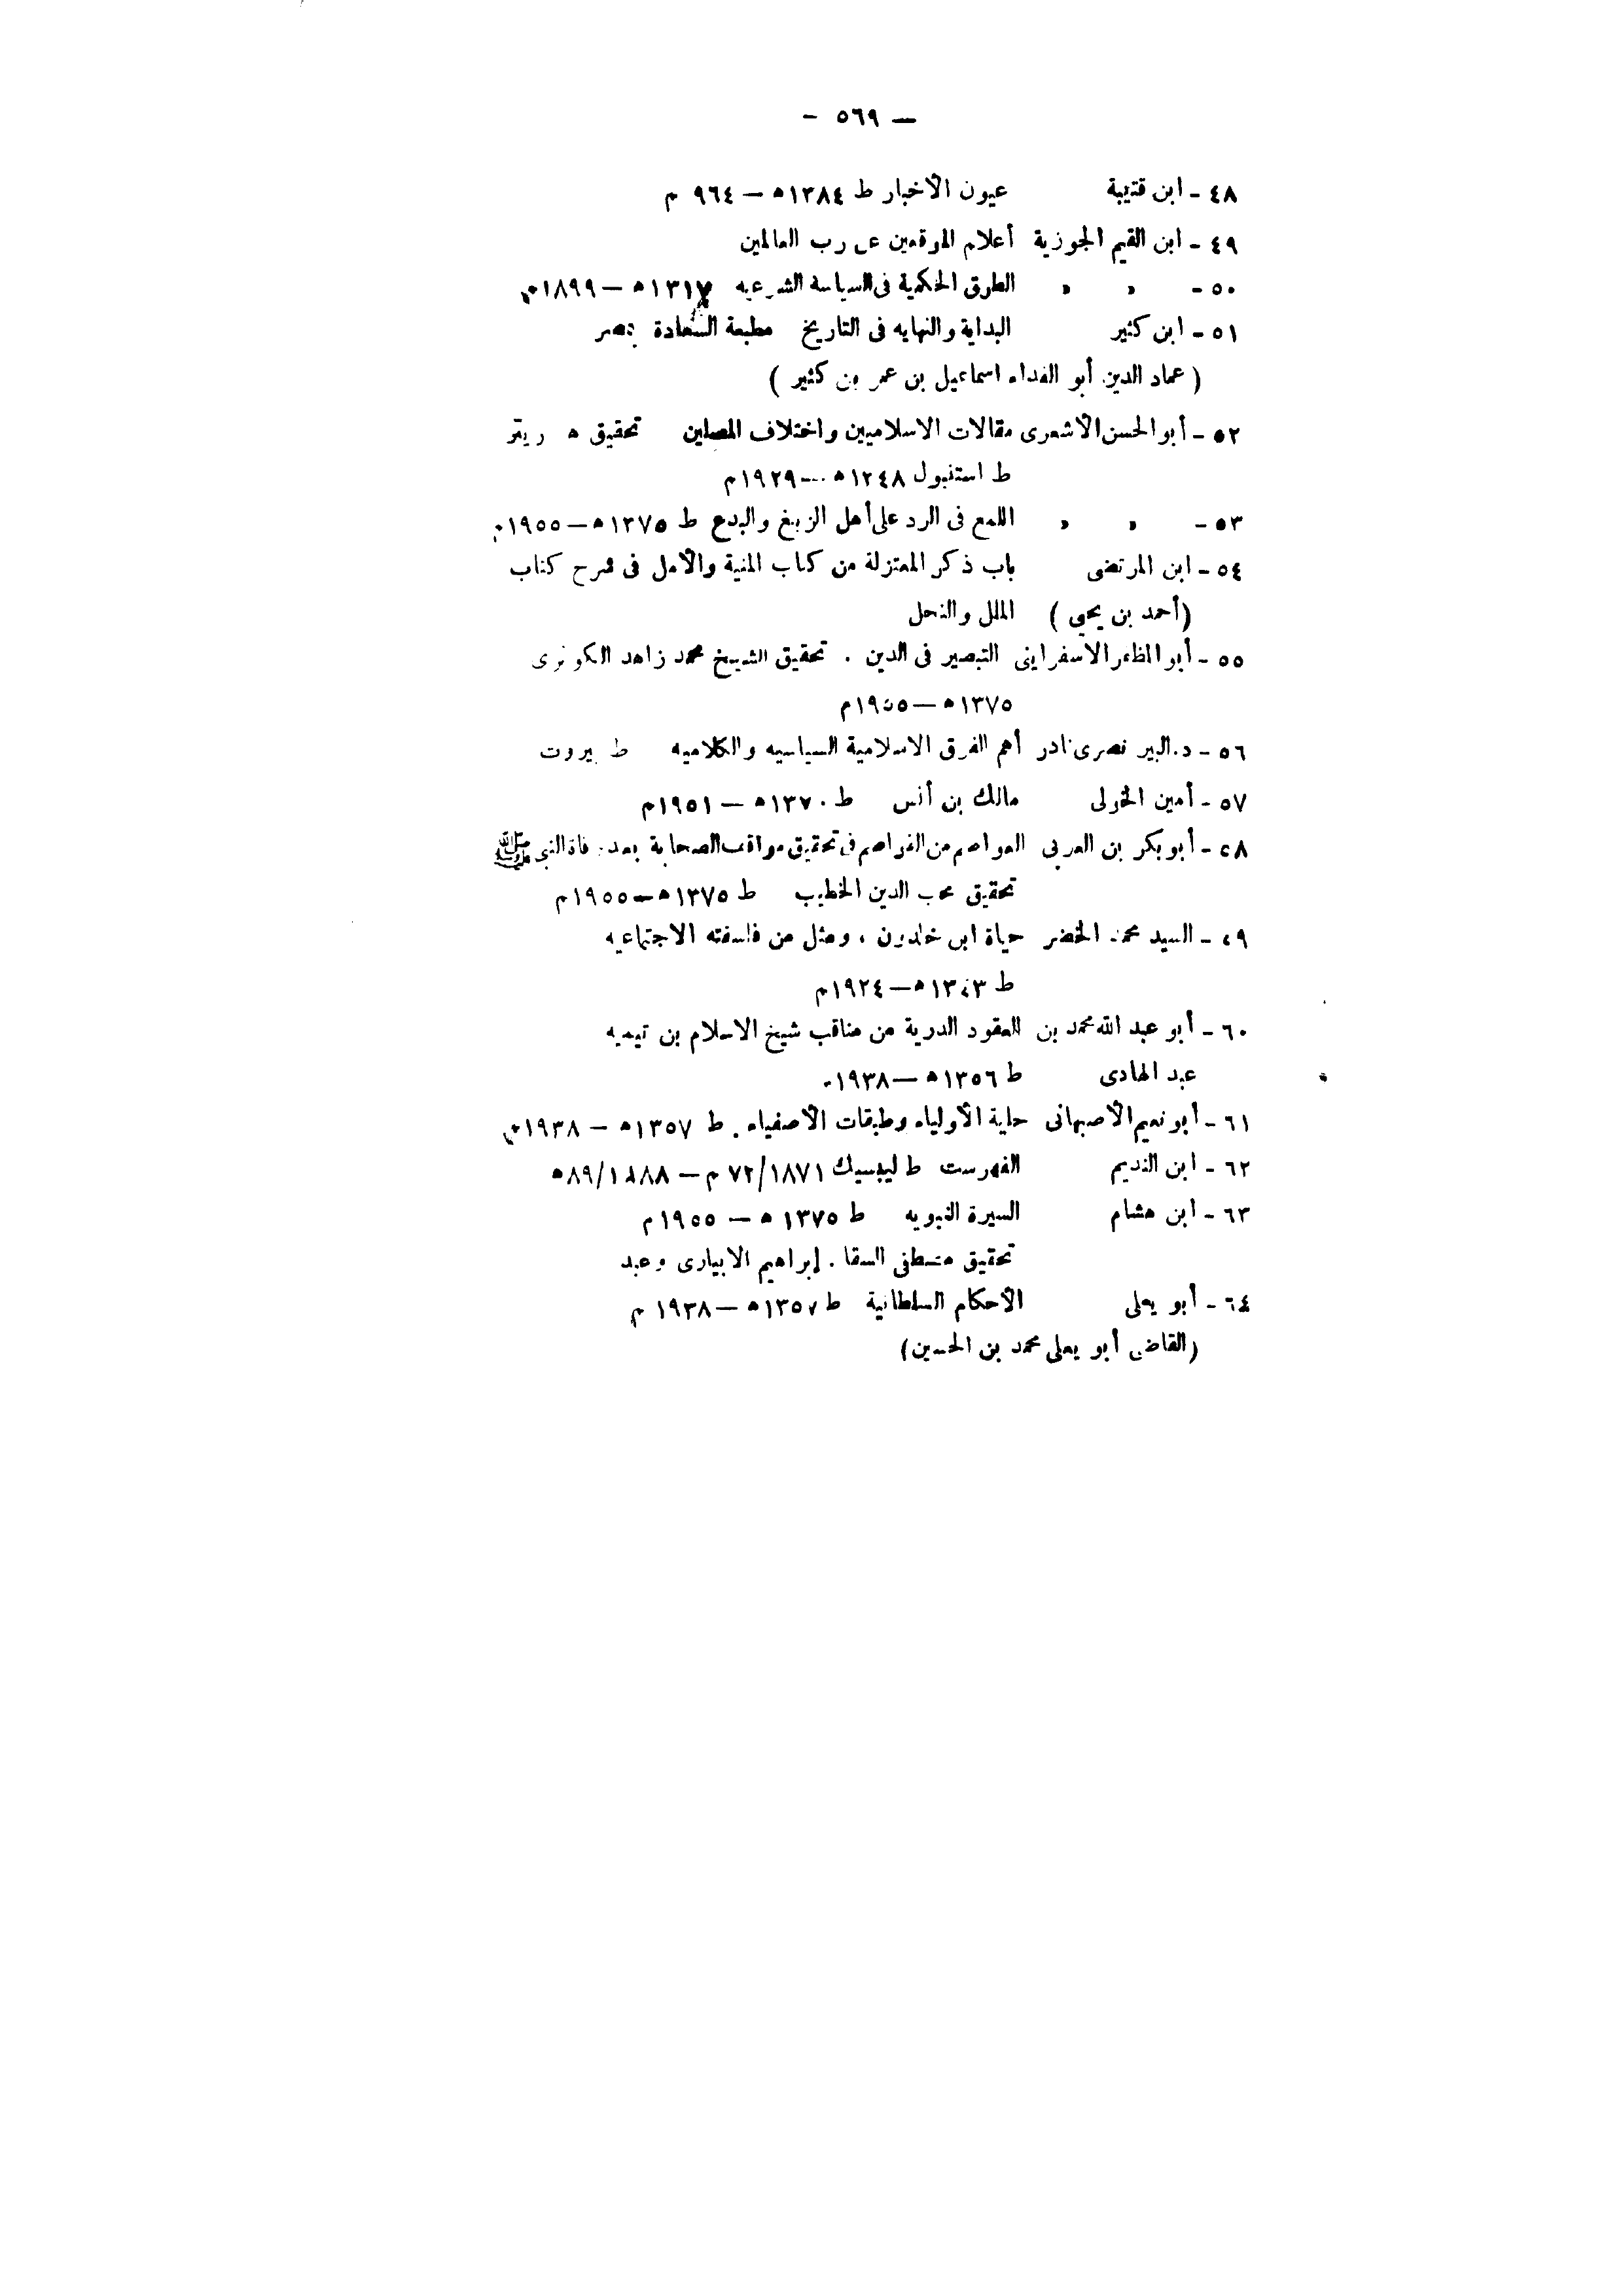 — ٥٦٩ -
٤٨ - ابن قتيبة عيون الأخبار ط ١٣٨٤ه — ٩٦٤ م
٤٩ - ابن القيم الجوزية أعلام الموقعين عن رب العالمين
٥٠ - » » الطرق الحكمية فى السياسة الشرعيه ١٣١٧ه — ١٨٩٩م
٥١ - ابن كثير البداية والنهايه فى التاريخ مطبعة السعادة بمصر
( عماد الدين أبو الفداء اسماعيل بن عمر بن كثير )
٥٢ - أبو الحسن الأشعرى مقالات الاسلاميين واختلاف المصلين تحقيق ه ريتر
ط استنبول ١٢٤٨ه — ١٩٢٩م
٥٣ - » » اللمع فى الرد على أهل الزيغ والبدع ط ١٣٧٥ه — ١٩٥٥م
٥٤ - ابن المرتضى باب ذكر المعتزلة من كتاب المنية والأمل فى شرح كتاب
(أحمد بن يحيى ) الملل والنحل
٥٥ - أبو المظفر الاسفراينى التبصير فى الدين . تحقيق الشيخ محمد زاهد الكوثرى
١٣٧٥ه — ١٩٥٥م
٥٦ - د. البير نصرى نادر أهم الفرق الاسلامية السياسيه والكلاميه ط بيروت
٥٧ - أمين الخولى مالك بن أنس ط ١٣٧٠ه — ١٩٥١م
٥٨ - أبو بكر بن العربى العواصم من القواصم فى تحقيق مواقف الصحابة بعد وفاة النبى ﷺ
تحقيق محب الدين الخطيب ط ١٣٧٥ه — ١٩٥٥م
٥٩ - السيد محمد الخضر حياة ابن خلدون ، ومثل من فلسفته الاجتماعيه
ط ١٣٤٣ه — ١٩٢٤م
٦٠ - أبو عبد الله محمد بن العقود الدرية من مناقب شيخ الاسلام بن تيميه
عبد الهادى ط ١٣٥٦ه — ١٩٣٨م
٦١ - أبو نعيم الأصبهانى حلية الأولياء وطبقات الأصفياء . ط ١٣٥٧ه — ١٩٣٨م
٦٢ - ابن النديم الفهرست ط ليبسيك ٧٢/١٨٧١ م — ٨٩/١٢٨٨ه
٦٣ - ابن هشام السيرة النبويه ط ١٣٧٥ ه — ١٩٥٥م
تحقيق مصطفى السقا . إبراهيم الابيارى وعبد
٦٤ - أبو يعلى الأحكام السلطانية ط ١٣٥٧ه — ١٩٣٨ م
(القاضى أبو يعلى محمد بن الحسين)